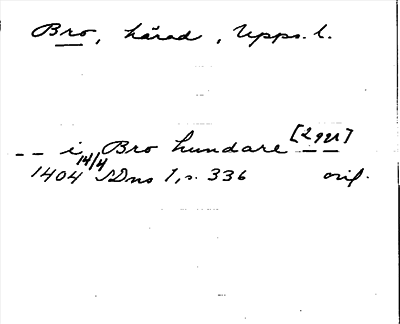 Bro, härad, Upps. l.
-- i Bro hundare [2 ggr] --
1404 14/4 SDns 1, s. 336 orig.